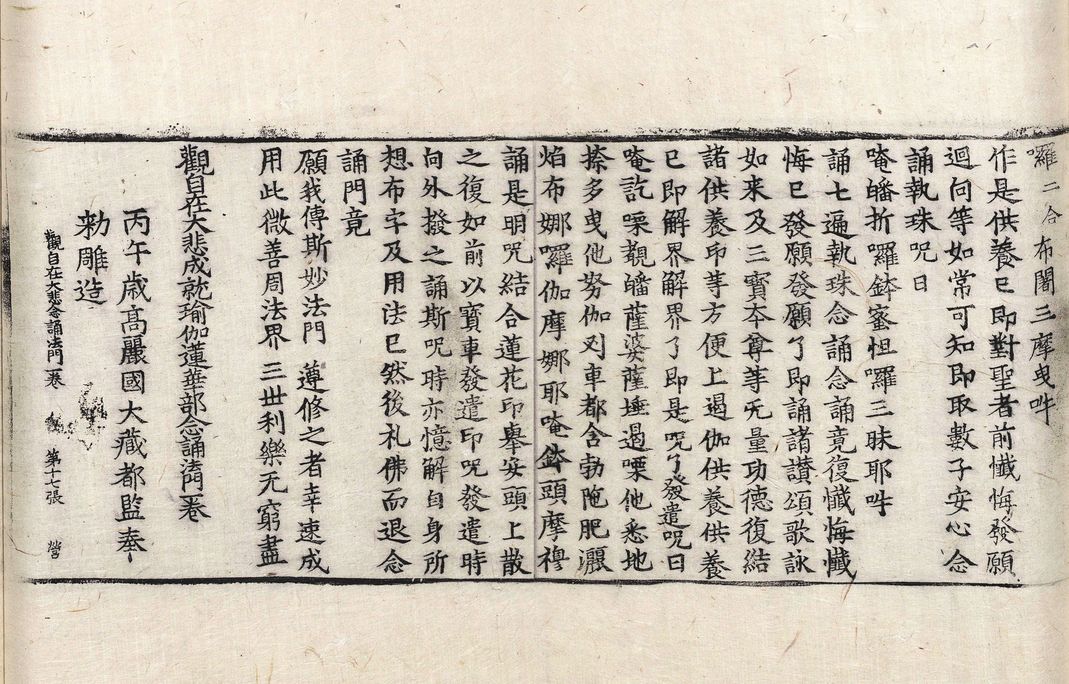 囉二合布闍三摩曳吽
作是供養已即對聖者前懺悔發願
迴向等如常可知即取數子安心念
誦執珠咒曰
唵皤折囉鉢蜜怛囉三昧耶吽
誦七遍執珠念誦念誦竟復懺悔懺
悔已發願發願了即誦諸讃頌歌詠
如來及三寶夲尊䒭无量功德復結
諸供養印䒭方便上遏伽供養供養
已即解界解界了即是咒了發遣咒曰
唵訖㗚覩皤薩婆薩埵遏㗚他悉地
捺多曳他努伽刘車都含勃陁肥灑
焰布娜囉伽摩娜耶唵鉢頭摩穆
誦是明咒結合蓮花印舉安頭上散
之復如前以寶車發遣印咒發遣時
向外撥之誦斯咒時亦憶解自身所
想布字及用法已然後礼佛而退念
誦門竟
願我傳斯妙法門 遵修之者幸速成
用此微善周法界 三世利樂无窮盡
觀自在大悲成就瑜伽蓮華部念誦法門一卷
丙午歲高麗國大藏都監奉
勑雕造
觀自在大悲念誦法門一卷 第十七張 營